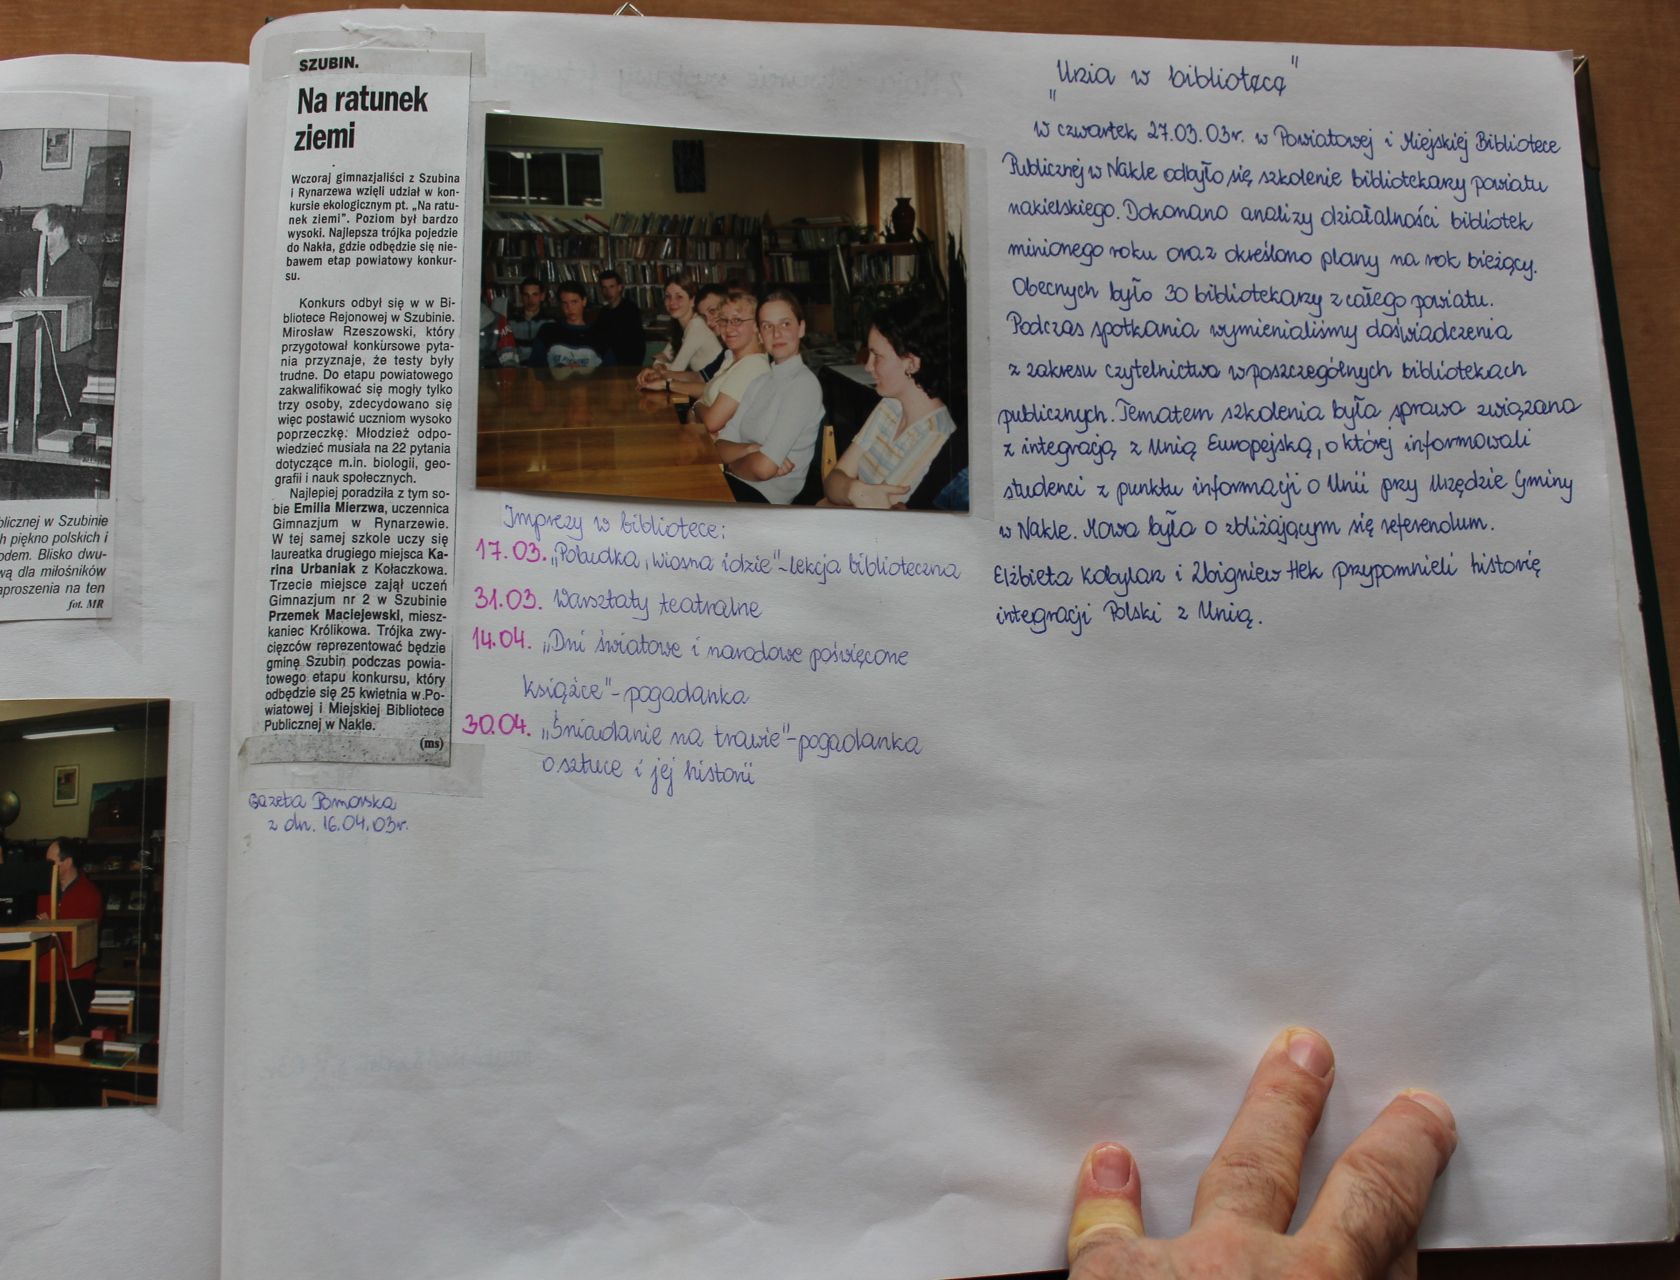 blicznej w Szubinie
h piękno polskich i
odem. Blisko dwu-
wą dla miłośników
aproszenia na ten
fot. MR
SZUBIN.
Na ratunek
ziemi
Wczoraj gimnazjaliści z Szubina
i Rynarzewa wzięli udział w kon-
kursie ekologicznym pt. „Na ratu-
nek ziemi”. Poziom był bardzo
wysoki. Najlepsza trójka pojedzie
do Nakła, gdzie odbędzie się nie-
bawem etap powiatowy konkur-
su.
Konkurs odbył się w w Bi-
bliotece Rejonowej w Szubinie.
Mirosław Rzeszowski, który
przygotował konkursowe pyta-
nia przyznaje, że testy były
trudne. Do etapu powiatowego
zakwalifikować się mogły tylko
trzy osoby, zdecydowano się
więc postawić uczniom wysoko
poprzeczkę. Młodzież odpo-
wiedzieć musiała na 22 pytania
dotyczące m.in. biologii, geo-
grafii i nauk społecznych.
Najlepiej poradziła z tym so-
bie Emilia Mierzwa, uczennica
Gimnazjum w Rynarzewie.
W tej samej szkole uczy się
laureatka drugiego miejsca Ka-
rina Urbaniak z Kołaczkowa.
Trzecie miejsce zajął uczeń
Gimnazjum nr 2 w Szubinie
Przemek Maciejewski, miesz-
kaniec Królikowa. Trójka zwy-
cięzców reprezentować będzie
gminę Szubin podczas powia-
towego etapu konkursu, który
odbędzie się 25 kwietnia w Po-
wiatowej i Miejskiej Bibliotece
Publicznej w Nakle.
(ms)
Gazeta Pomorska
z dn. 16.04.03r.
Imprezy w bibliotece:
17.03. „Pobudka, wiosna idzie" - lekcja biblioteczna
31.03. Warsztaty teatralne
14.04. „Dni światowe i narodowe poświęcone
książce" - pogadanka
30.04. „Śniadanie na trawie" - pogadanka
o sztuce i jej historii
„Unia w bibliotece"
W czwartek 27.03.03r. w Powiatowej i Miejskiej Bibliotece
Publicznej w Nakle odbyło się szkolenie bibliotekarzy powiatu
nakielskiego. Dokonano analizy działalności bibliotek
minionego roku oraz określono plany na rok bieżący.
Obecnych było 30 bibliotekarzy z całego powiatu.
Podczas spotkania wymienialiśmy doświadczenia
z zakresu czytelnictwa w poszczególnych bibliotekach
publicznych. Tematem szkolenia była sprawa związana
z integracją z Unią Europejską, o której informowali
studenci z punktu informacji o Unii przy Urzędzie Gminy
w Nakle. Mowa była o zbliżającym się referendum.
Elżbieta Kobylarz i Zbigniew Hek przypomnieli historię
integracji Polski z Unią.